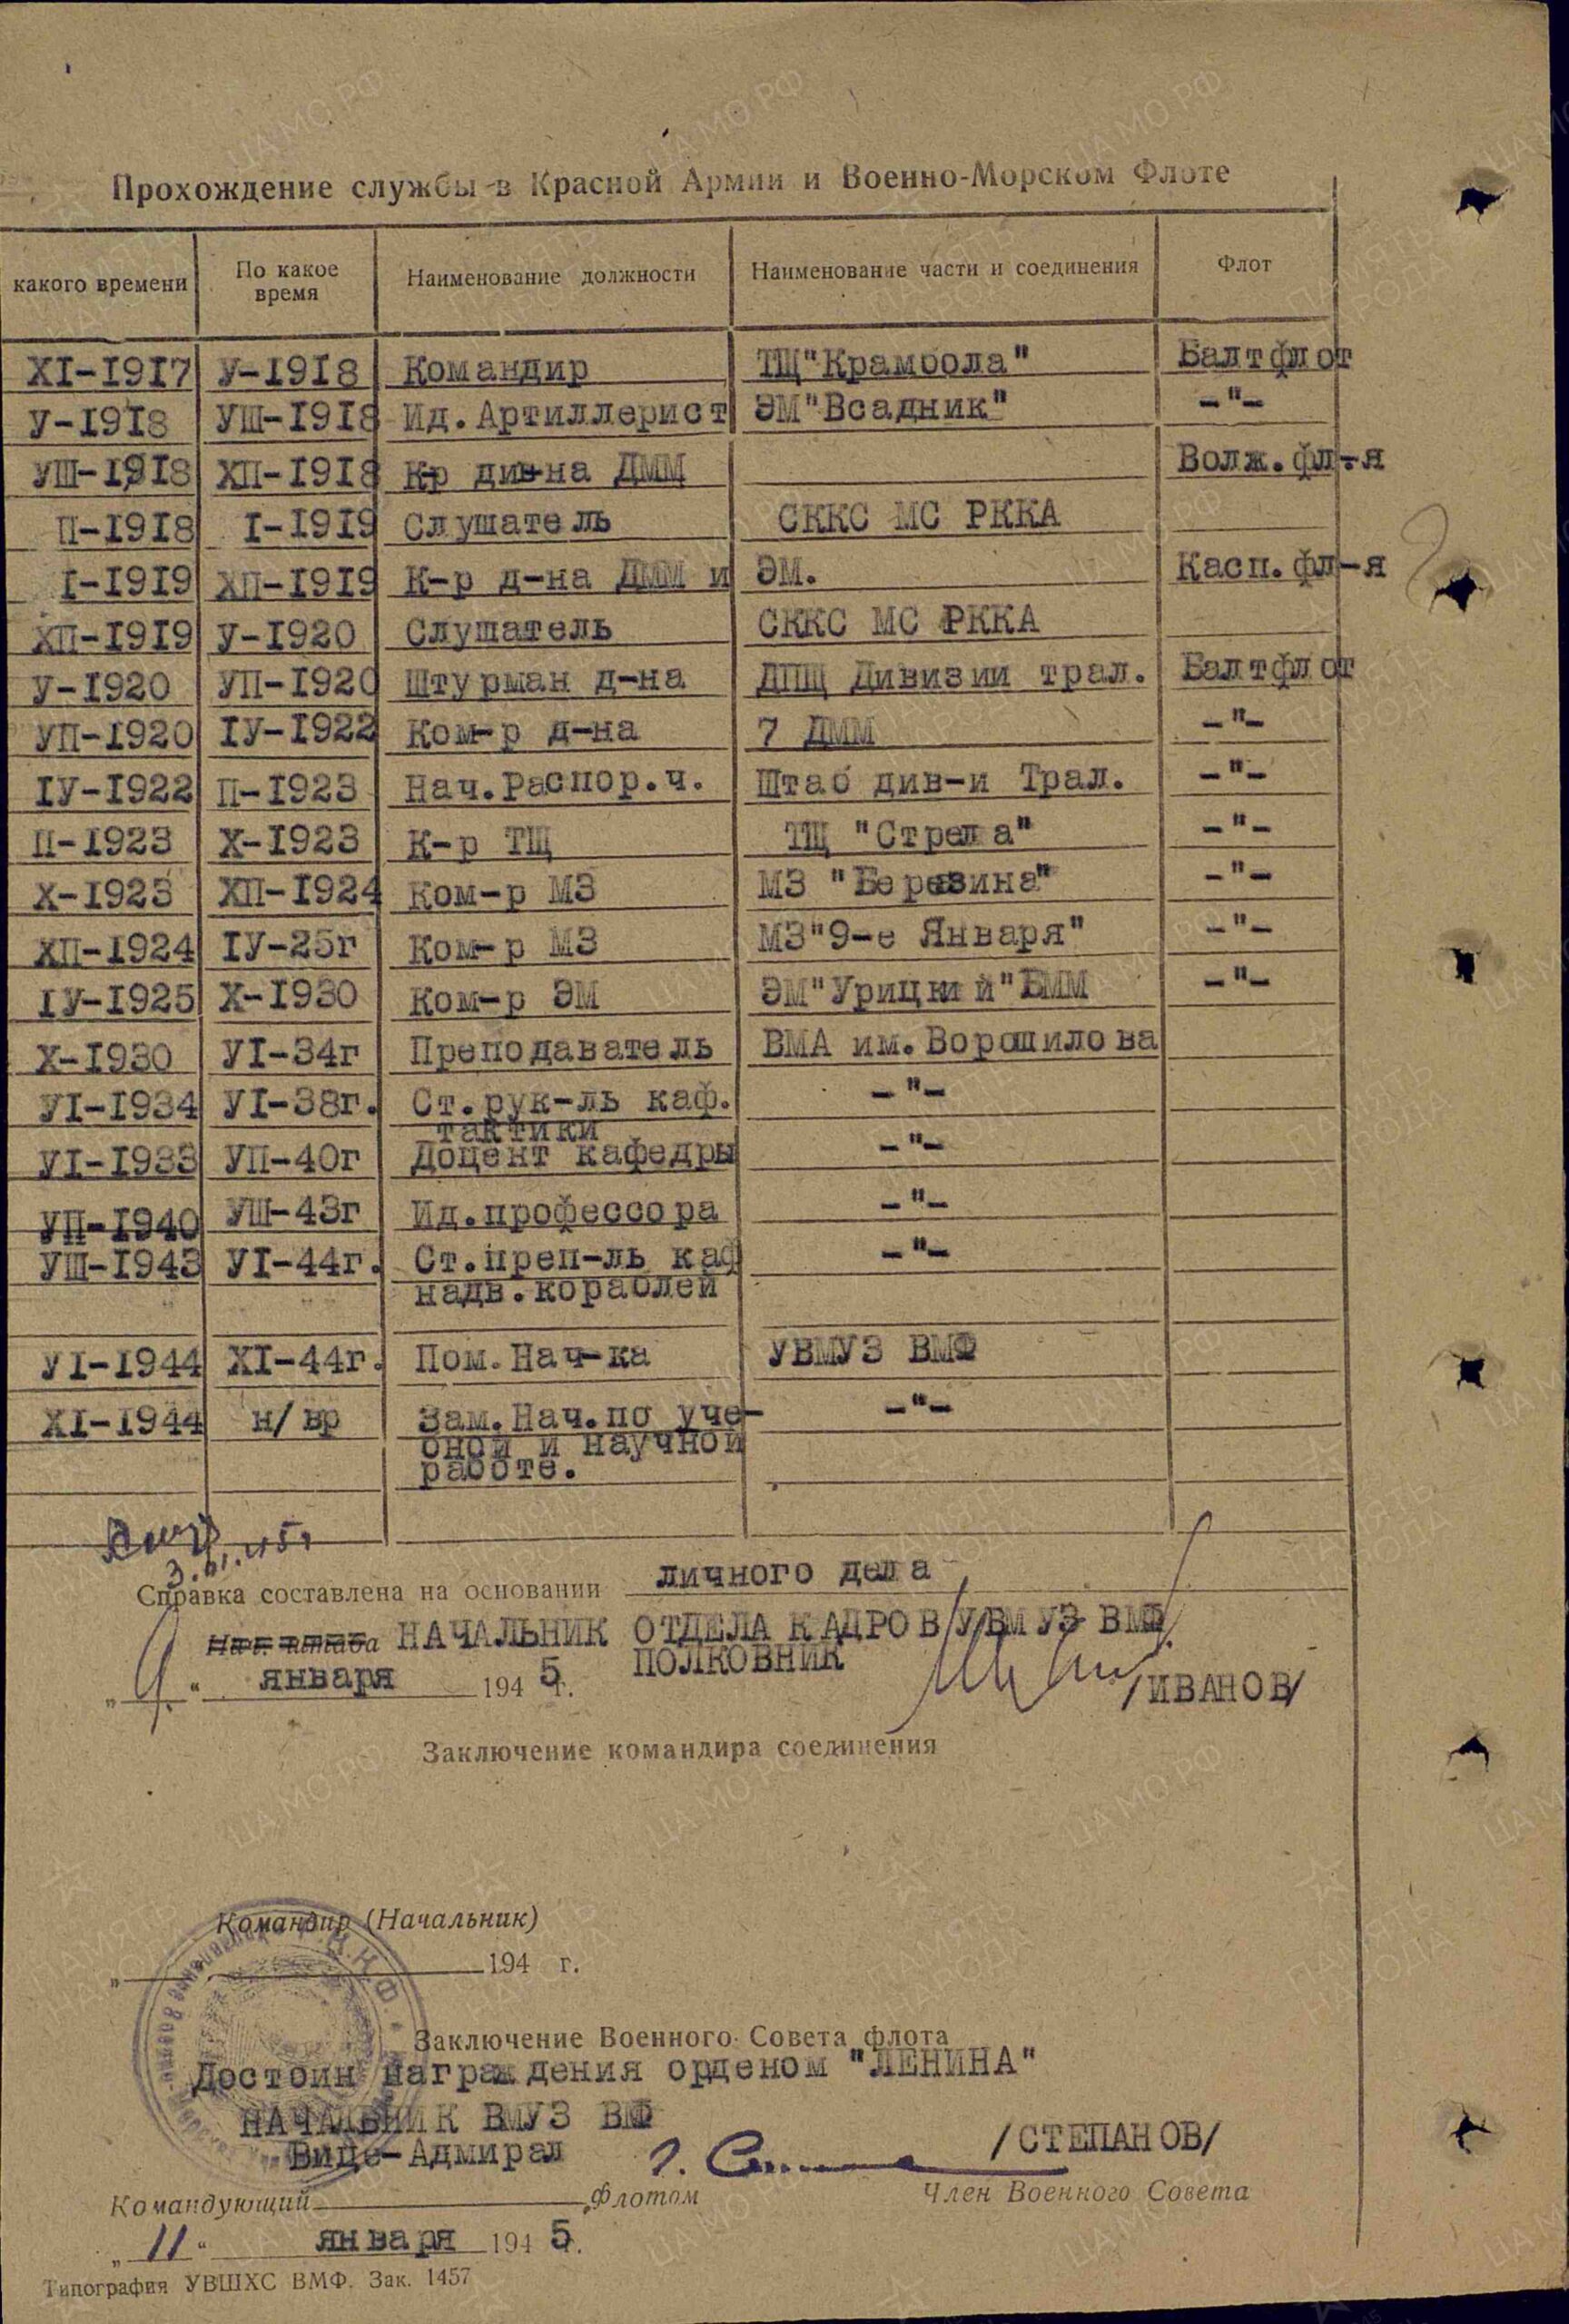 Прохождение службы в Красной Армии и Военно-Морском Флоте
какого времени По какое время Наименование должности Наименование части и соединения Флот
XI-1917 У-1918 Командир ТЩ"Крамбола" Балтфлот
У-1918 УШ-1918 Ид.Артиллерист ЭМ"Всадник" -"-
УШ-1918 ХП-1918 Кр див-на ДММ Волж.фл-я
П-1918 I-1919 Слушатель СККС МС РККА
I-1919 ХП-1919 К-р д-на ДММ и ЭМ. Касп.фл-я
ХП-1919 У-1920 Слушатель СККС МС РККА
У-1920 УП-1920 Штурман д-на ДПЩ Дивизии трал. Балтфлот
УП-1920 IУ-1922 Ком-р д-на 7 ДММ -"-
IУ-1922 П-1923 Нач.Распор.ч. Штаб див-и Трал. -"-
П-1923 Х-1923 К-р ТЩ ТЩ "Стрела" -"-
Х-1923 ХП-1924 Ком-р МЗ МЗ "Березина" -"-
ХП-1924 IУ-25г Ком-р МЗ МЗ"9-е Января" -"-
IУ-1925 Х-1930 Ком-р ЭМ ЭМ"Урицкий"БММ -"-
Х-1930 УI-34г Преподаватель ВМА им.Ворошилова
УI-1934 УI-38г. Ст.рук-ль каф. -"-
тактики
УI-1938 УП-40г Доцент кафедры -"-
УП-1940 УШ-43г Ид.профессора -"-
УШ-1943 УI-44г. Ст.преп-ль каф -"-
надв.кораблей
УI-1944 XI-44г. Пом.Нач-ка УВМУЗ ВМФ
XI-1944 н/вр Зам.Нач.по уче- -"-
бной и научной
работе.
Справка составлена на основании личного дела
Нач. штаба НАЧАЛЬНИК ОТДЕЛА КАДРОВ УВМУЗ ВМФ
ПОЛКОВНИК
„9“ января 1945 г. /ИВАНОВ/
Заключение командира соединения
Командир (Начальник)
„ “ 194 г.
Заключение Военного Совета флота
Достоин награждения орденом "ЛЕНИНА"
НАЧАЛЬНИК ВМУЗ ВМФ
Вице-Адмирал /СТЕПАНОВ/
Командующий флотом Член Военного Совета
„11“ января 1945 г.
Типография УВШХС ВМФ. Зак. 1457